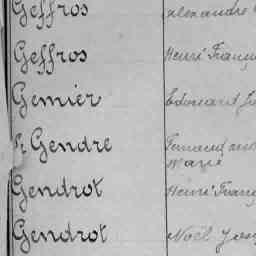 Geffros Alexandre
Geffros Henri Franç
Gemier Edouard
Le Gendre Fernand
Marie
Gendrot Henri Franç
Gendrot Noël Jos